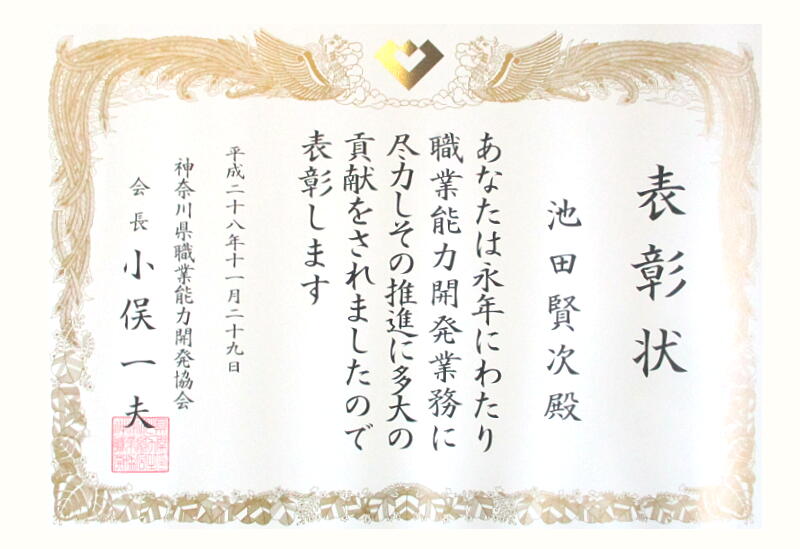 表彰状
池田賢次殿
あなたは永年にわたり
職業能力開発業務に
尽力しその推進に多大の
貢献をされましたので
表彰します
平成二十八年十一月二十九日
神奈川県職業能力開発協会
会長 小俣一夫